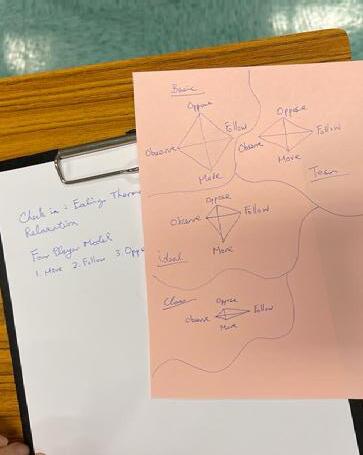 Check in : Eating
Relaxation
Four Player Model
1. Move 2. Follow 3. Oppo
Basic
Oppose
Follow
Observe
Move
Oppose
Follow
Observe
Move
Team
Oppose
Observe
Follow
Move
ideal
Close
Oppose
Observe
Follow
Move